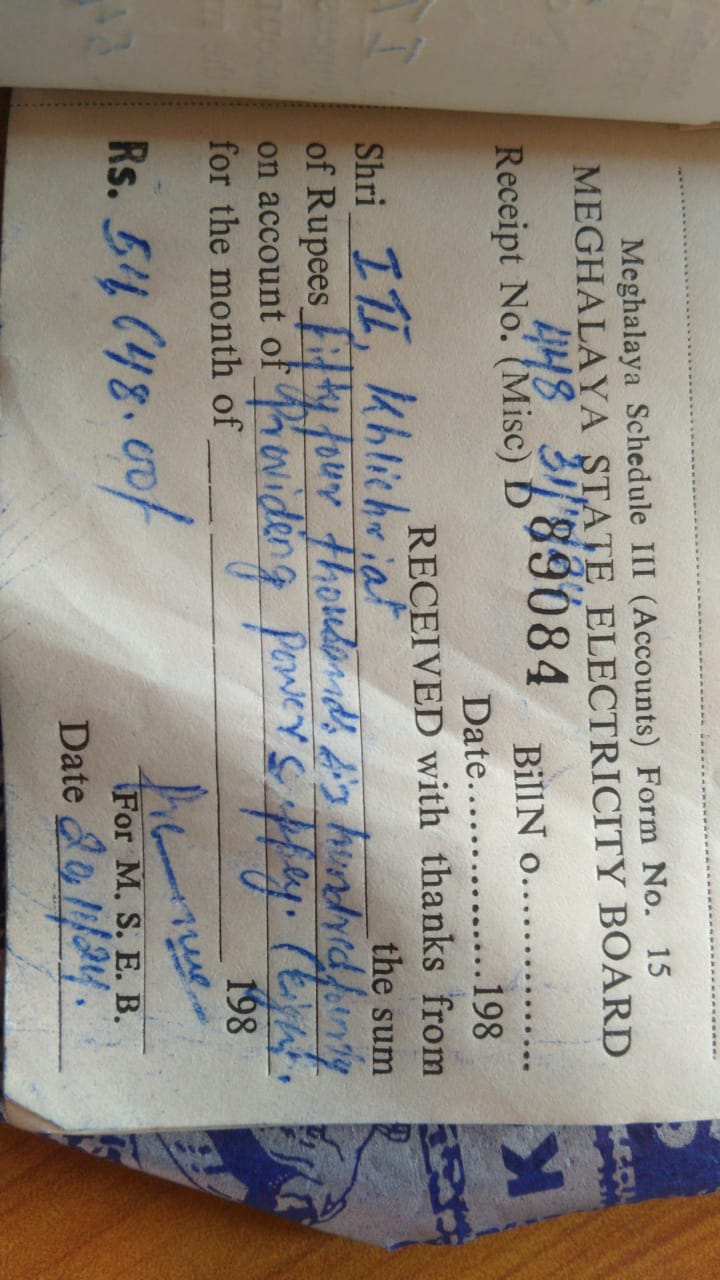 Meghalaya Schedule III (Accounts) Form No. 15
MEGHALAYA STATE ELECTRICITY BOARD
448
Receipt No. (Misc) D 89084 BillN o...............
Date...............198
RECEIVED with thanks from
Shri ITI, Khliehriat the sum
of Rupees fifty four thousands six hundred forty
on account of providing power supply. (Eight.
for the month of 198
Rs. 54,648.00/
For M. S. E. B.
Date 20/11/24.
K